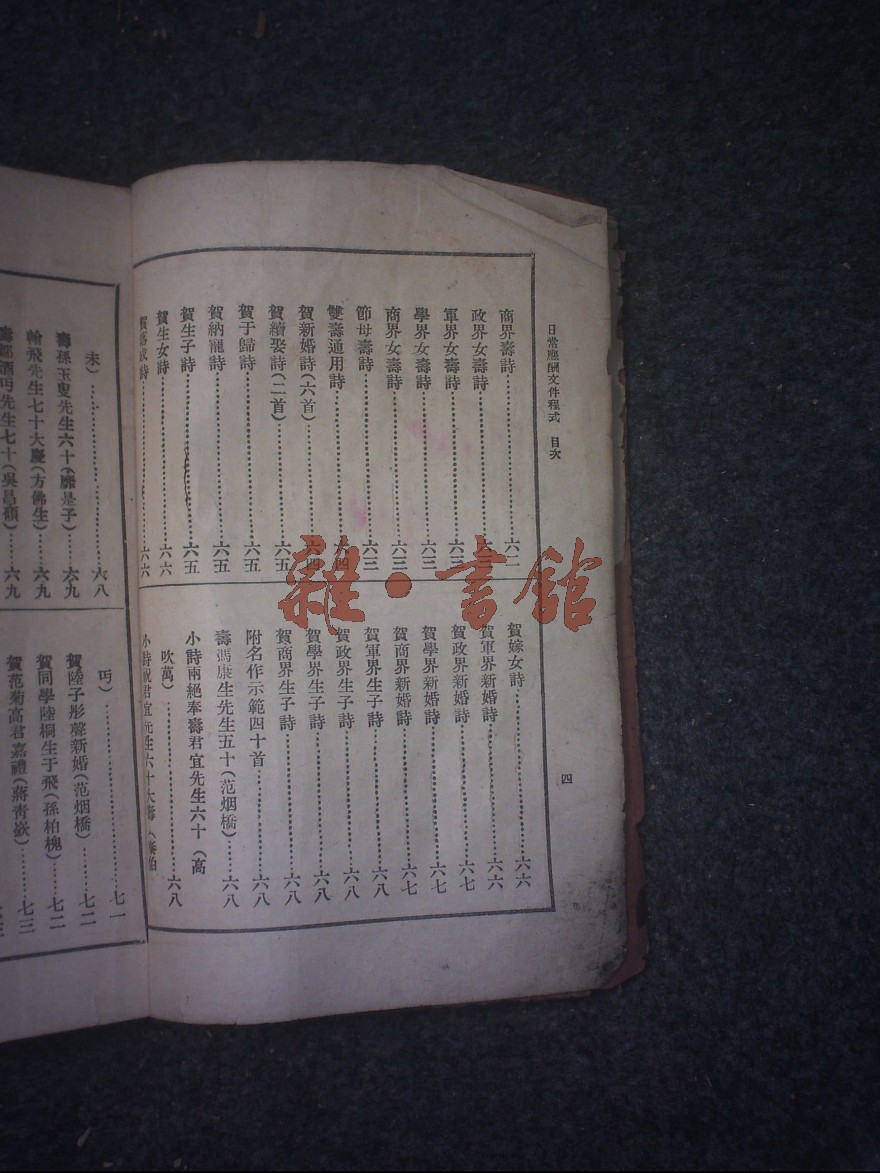 日常應酬文件程式　目次
四
商界壽詩……六二
政界女壽詩……六三
軍界女壽詩……六三
學界女壽詩……六三
商界女壽詩……六三
節母壽詩……六三
雙壽通用詩……六四
賀新婚詩(六首)……六四
賀續娶詩(二首)……六五
賀于歸詩……六五
賀納寵詩……六五
賀生子詩……六五
賀生女詩……六六
賀落成詩……六六
賀嫁女詩……六六
賀軍界新婚詩……六六
賀政界新婚詩……六七
賀學界新婚詩……六七
賀商界新婚詩……六七
賀軍界生子詩……六八
賀政界生子詩……六八
賀學界生子詩……六八
賀商界生子詩……六八
附名作示範四十首……六八
壽馮康生先生五十(范烟橋)……六八
小詩兩絕奉壽君宜先生六十(高
吹萬)……六八
小詩祝君宜先生六十大壽(
未)……六八
壽孫玉叟先生六十(是子)……六九
翰飛先生七十大慶(方佛生)……六九
壽先生七十(吳昌碩)……六九
丐)……七一
賀陸子彤聲新婚(范烟橋)……七二
賀同學陸桐生于飛(孫柏槐)……七二
賀范菊高君嘉禮(蔣青嶔)……七三
雜·書館